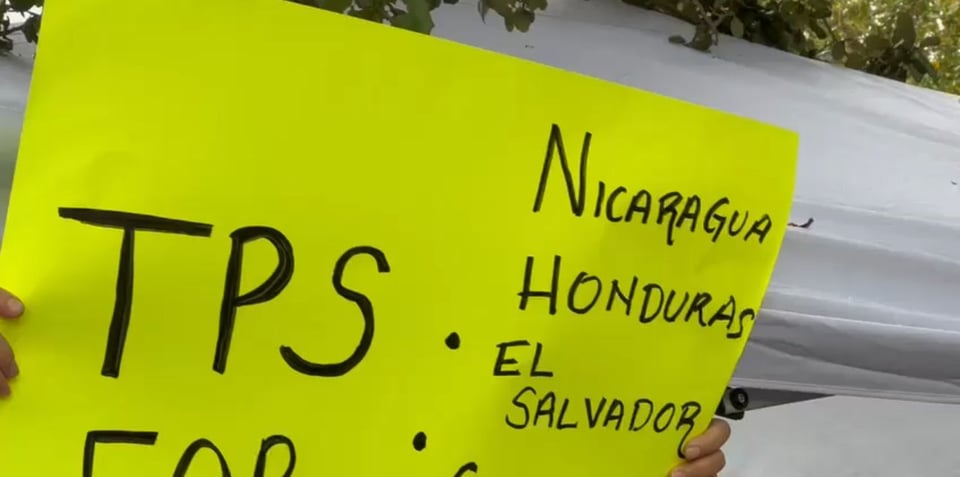 TPS
FOR
NICARAGUA
HONDURAS
EL
SALVADOR